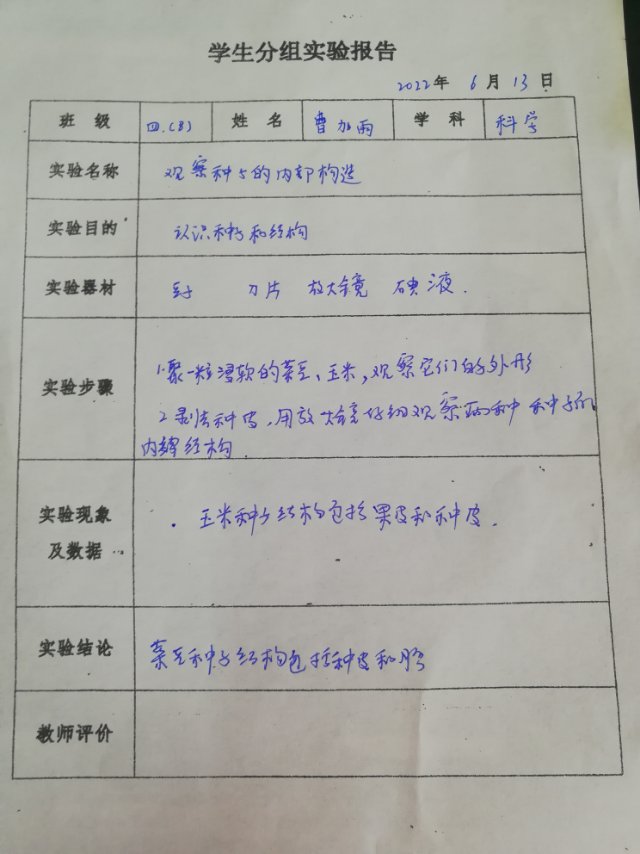 学生分组实验报告
2022年 6月 13日
班级 四.(8) 姓名 曹加雨 学科 科学
实验名称 观察种子的内部构造
实验目的 认识种子和结构
实验器材 豆子 刀片 放大镜 碘液.
1.取一粒浸软的菜豆、玉米,观察它们的外形
实验步骤
2剥去种皮,用放大镜仔细观察两种种子的
内部结构
实验现象 . 玉米种子结构包括果皮和种皮.
及数据
实验结论 菜豆种子结构包括种皮和胚
教师评价